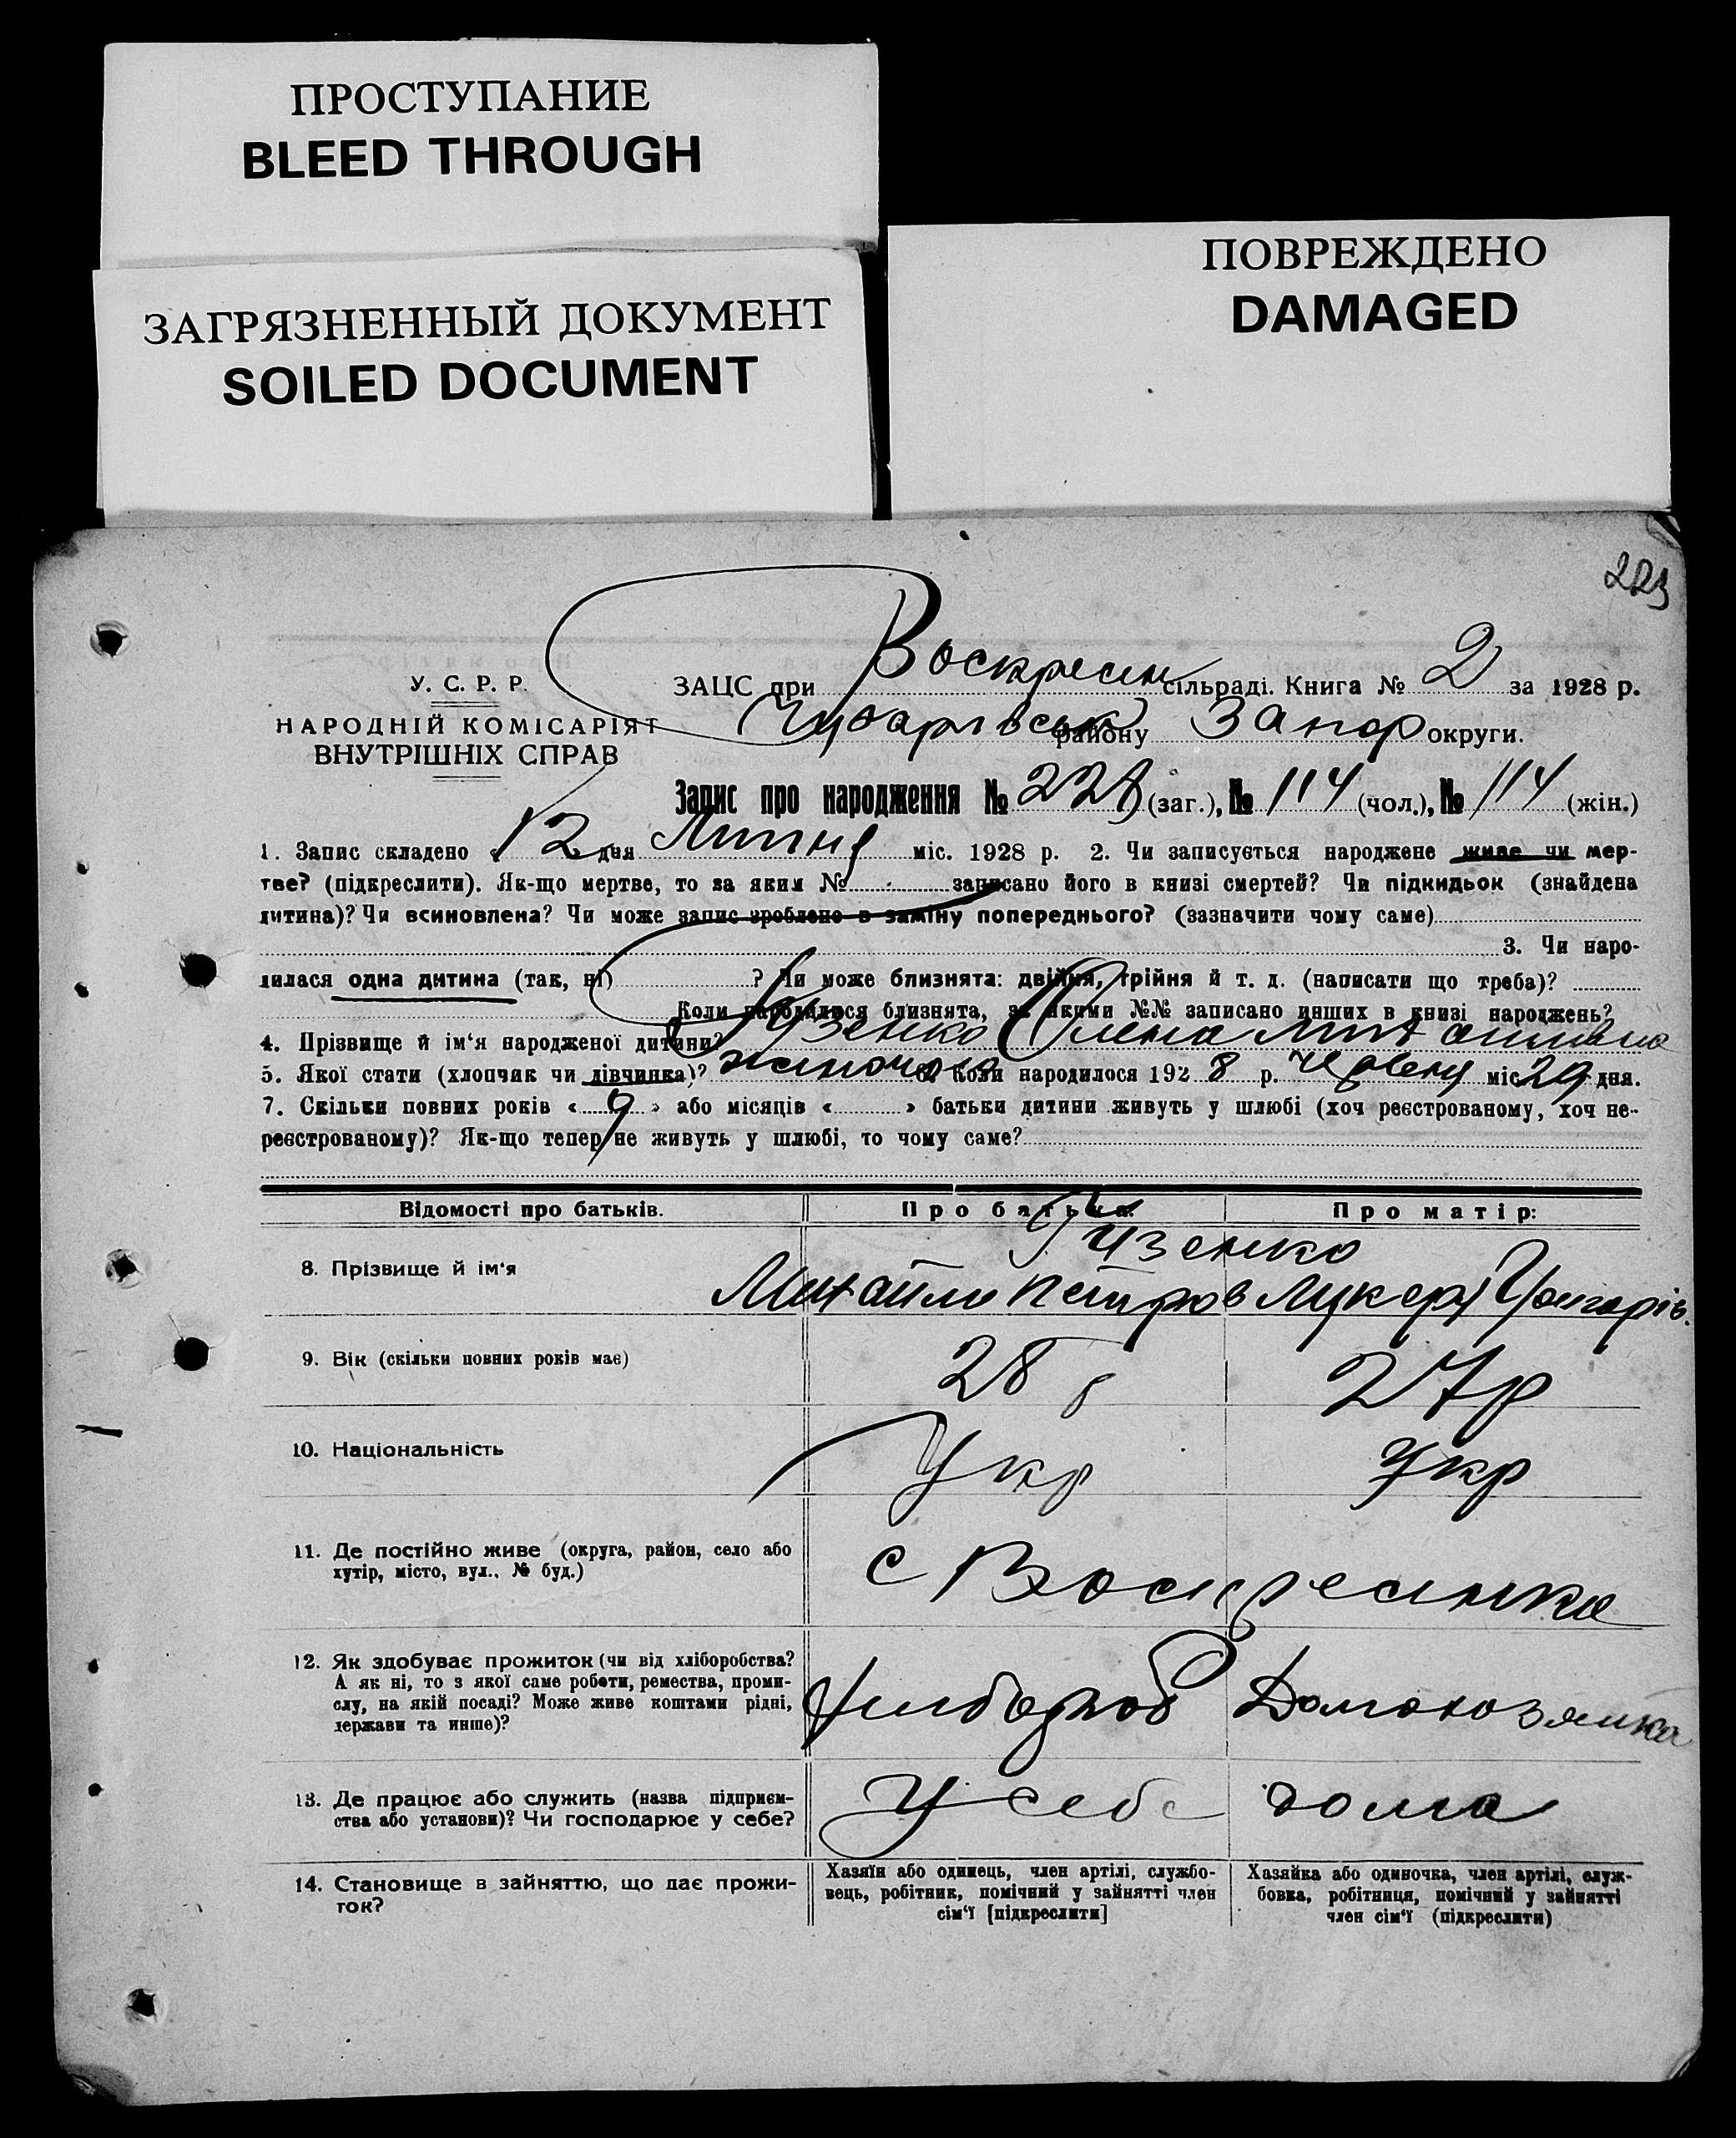 ПРОСТУПАНИЕ
BLEED THROUGH
ЗАГРЯЗНЕННЫЙ ДОКУМЕНТ
SOILED DOCUMENT
ПОВРЕЖДЕНО
DAMAGED
223
У. С. Р. Р.
НАРОДНІЙ КОМІСАРІЯТ
ВНУТРІШНІХ СПРАВ
ЗАЦС при Воскресен сільраді. Книга № 2 за 1928 р.
Чубарівськ району Запор округи.
Запис про народження № 228 (заг.), № 114 (чол.), № 114 (жін.)
1. Запис складено « 12 » дня Липня міс. 1928 р. 2. Чи записується народжене живе чи мер-
тве? (підкреслити). Як-що мертве, то за яким № записано його в книзі смертей? Чи підкидьок (знайдена
дитина)? Чи всиновлена? Чи може запис зроблено в заміну попереднього? (зазначити чому саме)
3. Чи наро-
дилася одна дитина (так, ні) ? Чи може близнята: двійня, трійня й т. д. (написати що треба)?
Коли народилося близнята, за якими №№ записано инших в книзі народжень?
4. Прізвище й ім'я народженої дитини? Гузенко Олена Михайлівна
5. Якої стати (хлопчик чи дівчинка)? жіночого 6. Коли народилося 1928 р. Червня міс 29 дня.
7. Скільки повних років « 9 » або місяців « » батьки дитини живуть у шлюбі (хоч реєстрованому, хоч не-
реєстрованому)? Як-що тепер не живуть у шлюбі, то чому саме?
Відомості про батьків. Про батька: Про матір:
Гузенко
8. Прізвище й ім'я Михайло Петров Лукеря Григорів.
9. Вік (скільки повних років має) 28 р 27р
10. Національність Укр Укр
11. Де постійно живе (округа, район, село або
хутір, місто, вул., № буд.) с Воскресенка
12. Як здобуває прожиток (чи від хліборобства?
А як ні, то з якої саме роботи, ремества, проми-
слу, на якій посаді? Може живе коштами рідні,
держави та инше)? Хлібороб Домохозяйка
13. Де працює або служить (назва підприєм-
ства або установи)? Чи господарює у себе? У себе дома
14. Становище в зайняттю, що дає прожи-
ток?
Хазяїн або одинець, член артілі, службо-
вець, робітник, помічний у зайнятті член
сім'ї [підкреслити]
Хазяйка або одиночка, член артілі, служ-
бовка, робітниця, помічний у зайнятті
член сім'ї (підкреслити)